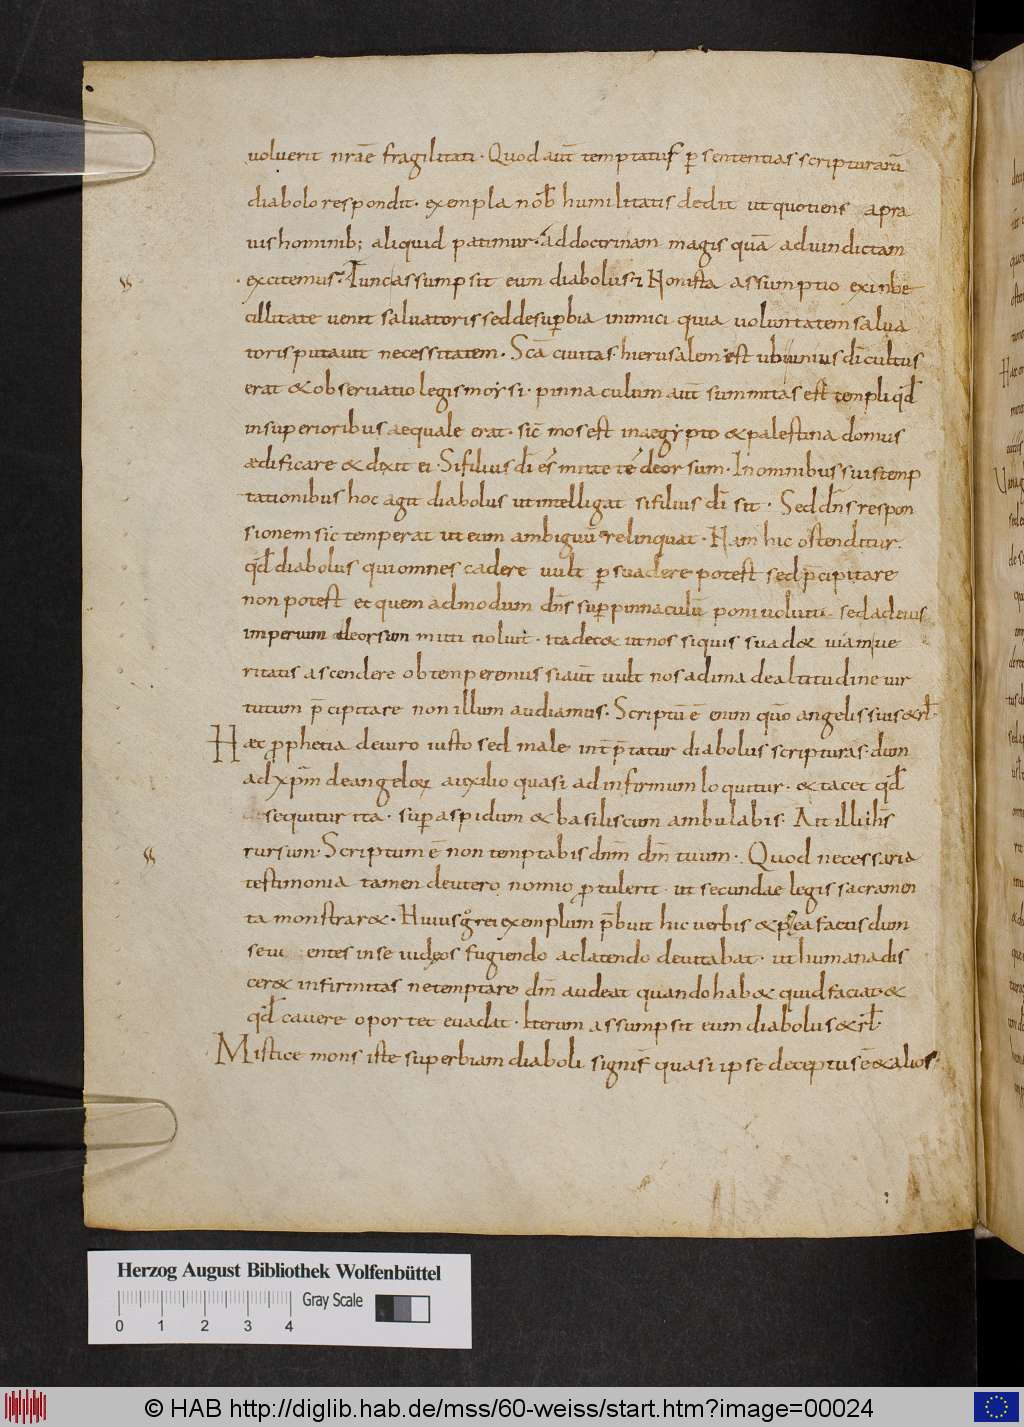 voluerit nrāe fragilitati · Quod aut̄ temptatus p̱ sententias scripturarū
diabolo respondit · exempla nob̄ humilitatis dedit ut quotiens apra
uis hominib; aliquid patimur · ad doctrinam magis quā ad uindictam
excitemus · Tunc assumpsit eum diabolus · Non ista assumptio ex inbe
cillitate uenit saluatoris sed de sup̱bia inimici quia uoluntatem salua
toris putauit necessitatem · Scā ciuitas hierusalem est ubi unius dī cultus
erat & obseruatio legis moysi · pinnaculum aut̄ summitas est templi qd̄
in superioribus aequale erat · sic̄ mos est in aegypto & palestina domus
ædificare & dixit ei · Si filius dī es̄ mitte te deorsum · In omnibus suis temp
tationibus hoc agit diabolus ut intelligat si filius dī sit · Sed dn̄s respon
sionem sic temperat ut eum ambiguū relinquat · Nam hic ostenditur
qd̄ diabolus qui omnes cadere uult p̱suadere potest sed p̄cipitare
non potest et quemadmodum dn̄s sup̱ pinnaculū poni uoluit sed ad eius
imperium deorsum mitti noluit · ita dec& ut nos si quis suad& uiam ue
ritatis ascendere obtemperemus si aut̄ uult nos ad ima de altitudine uir
tutum p̄cipitare non illum audiamus · Scriptū ē enim quō angelis suis & rl̄ ·
Hæc prophetia de uiro iusto sed male int̄p̄tatur diabolus scripturas · dum
ad xpm̄ de angeloꝝ auxilio quasi ad infirmum loquitur · & tacet qd̄
sequitur ita · sup̱ aspidum & basiliscum ambulabis · Ait illi ih̄s
rursum · Scriptum ē non temptabis dnm̄ dm̄ tuum · Quod necessaria
testimonia tamen deuteronomio protulerit · ut secundae legis sacramen
ta monstrar& · Huius g̊ rei exemplum p̄buit hic uerbis & postea factis dum
seui entes in se iudęos fugiendo ac latendo deuitabat · ut humana dis
cer& infirmitas ne temptare dm̄ audeat quando hab& quid faciat &
qd̄ cauere oportet euadat · Iterum assumpsit eum diabolus & rl̄ ·
Mistice mons iste superbiam diaboli signif̄ quasi ipse deceptus ē & alios
Herzog August Bibliothek Wolfenbüttel
Gray Scale
0 1 2 3 4
© HAB http://diglib.hab.de/mss/60-weiss/start.htm?image=00024